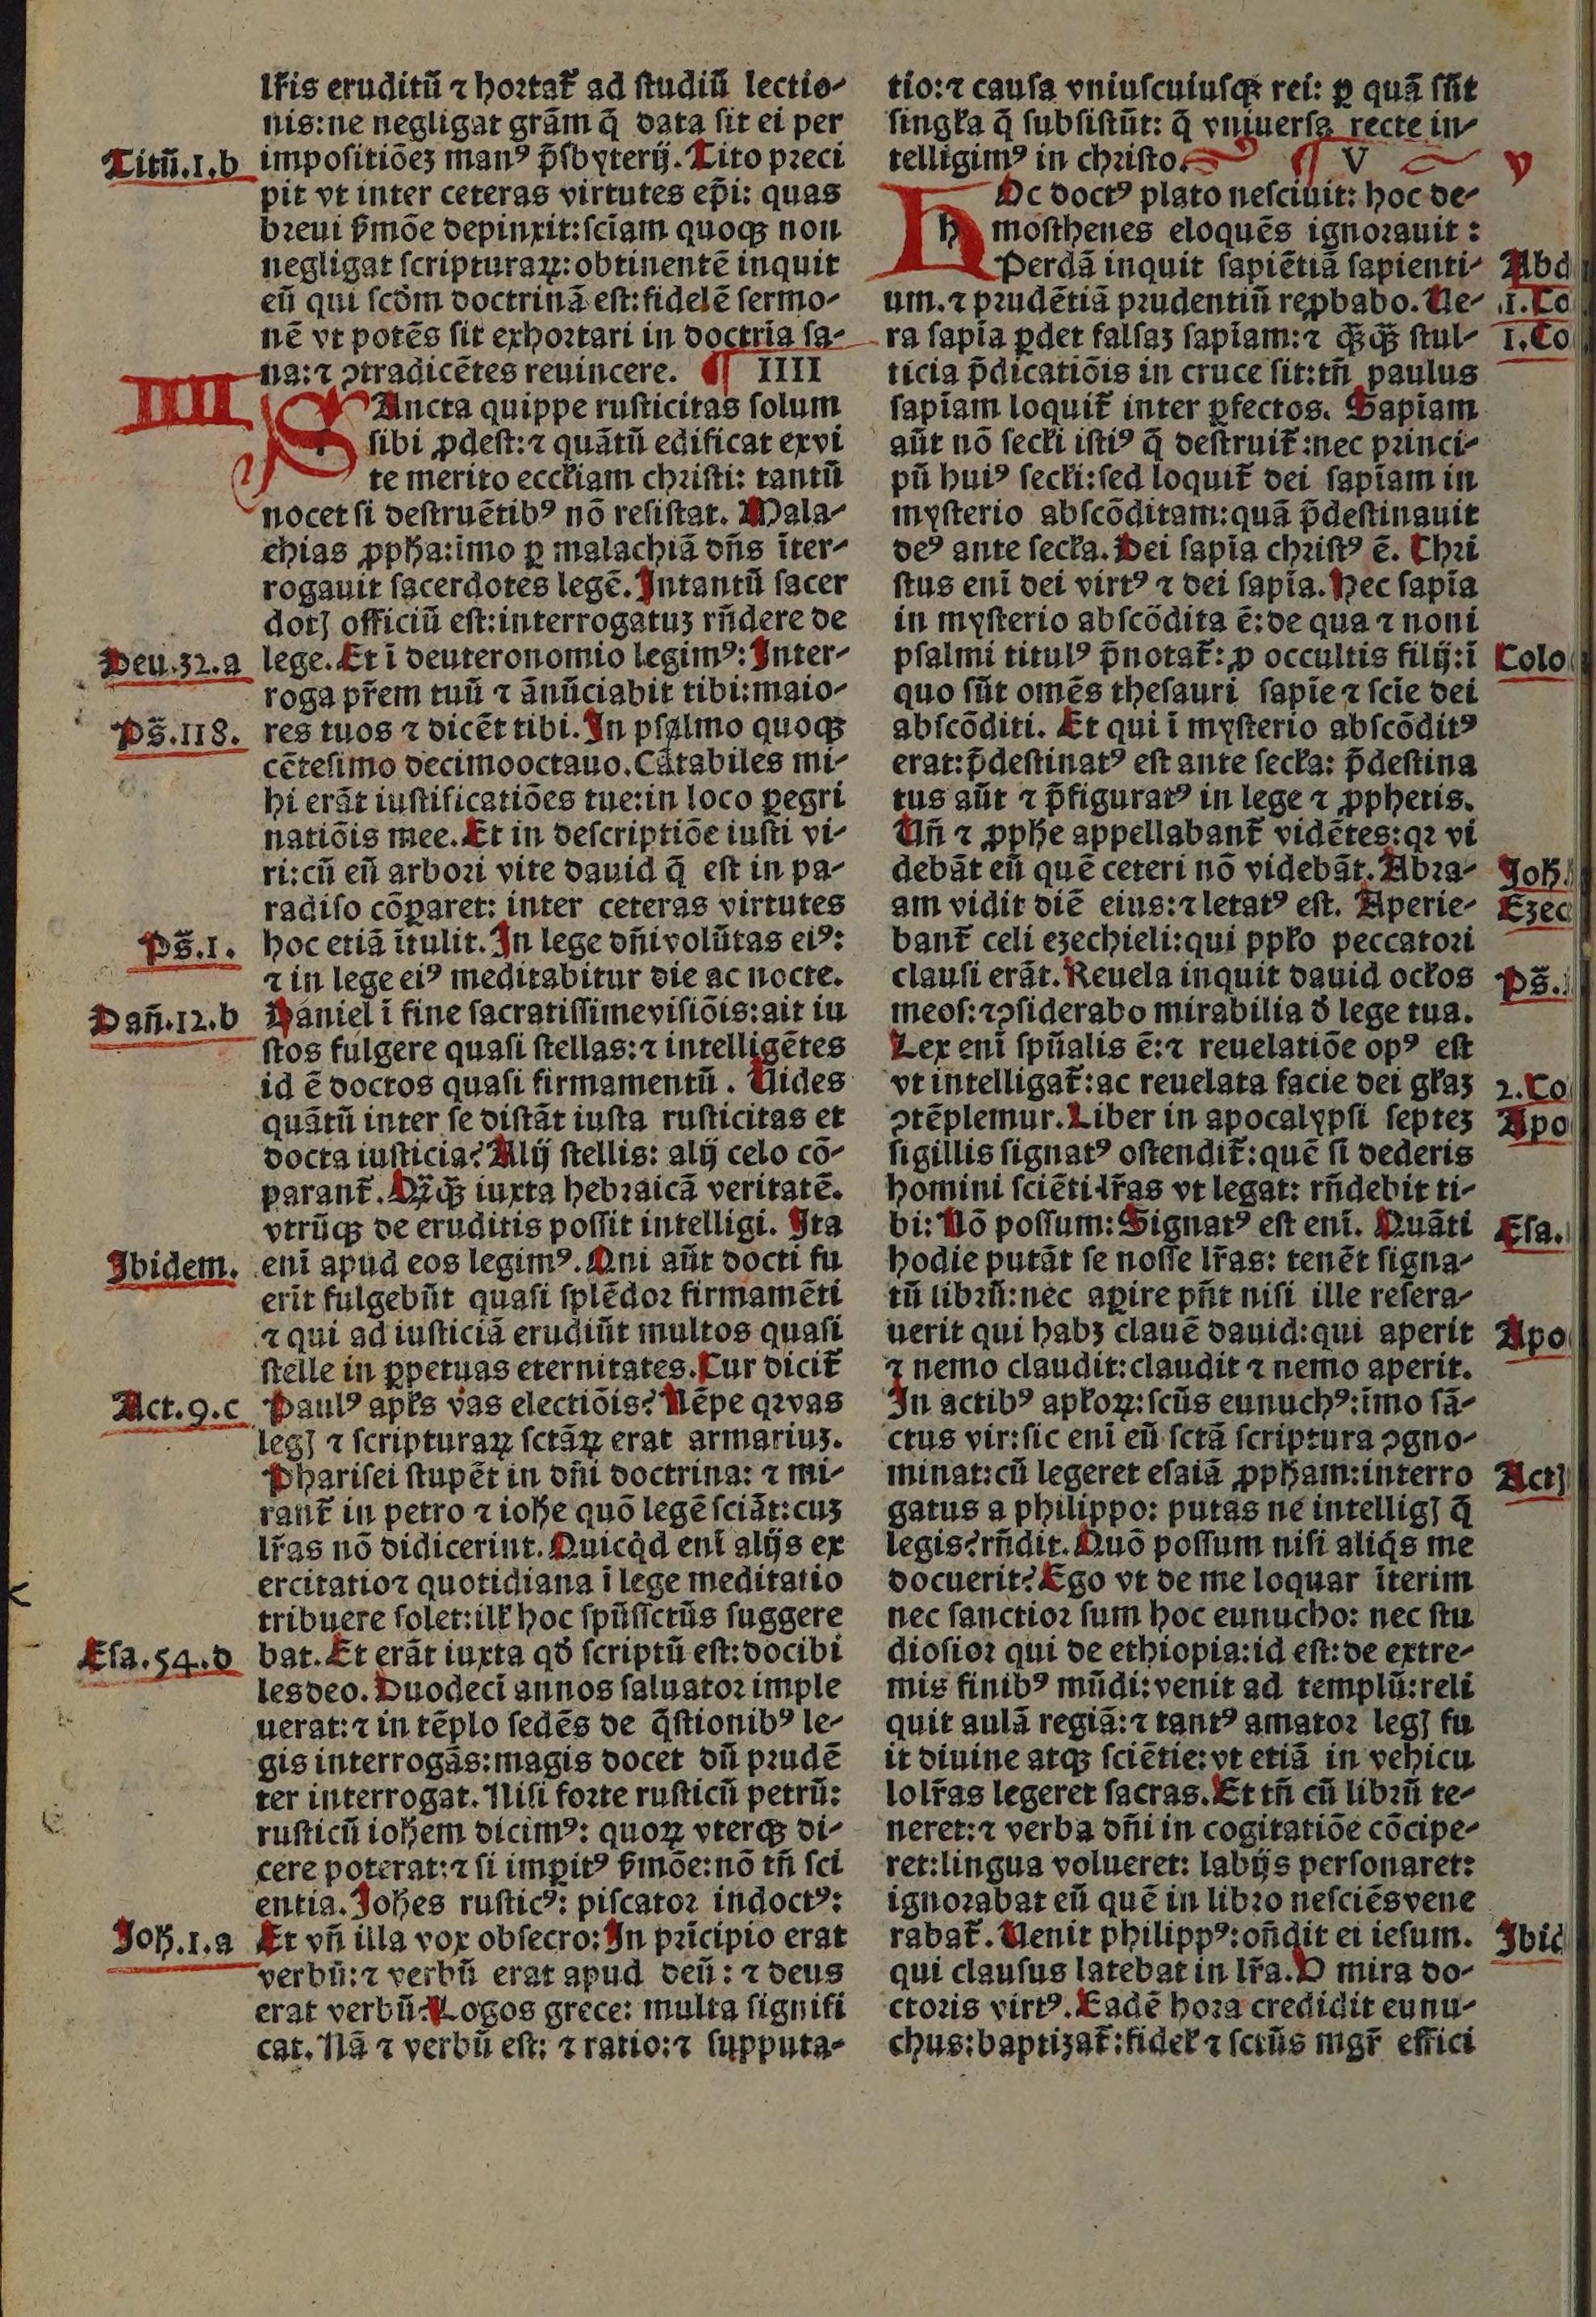 lr̃is eruditū ⁊ hoꝛtat̃ ad ſtudiū lectio-
nis:ne negligat grãm q̃ data ſit ei per
Titū.1.b impoſitiõeʒ manꝰ p̃ſbyterij. Tito pꝛeci
pit vt inter ceteras virtutes ep̃i: quas
bꝛeui ẜmõe depinxit:ſciam quoqꝫ non
negligat ſcripturaꝝ:obtinentẽ inquit
eũ qui ſcðm doctrinã eſt:fidelẽ ſermo-
nẽ vt potẽs ſit exhoꝛtari in doctrĩa ſa-
na:⁊ ꝯtradicẽtes reuincere. ¶ IIII
IIII
SAncta quippe ruſticitas ſolum
ſibi ꝓdeſt:⁊ quãtũ edificat exvi
te merito eccł̃iam chꝛiſti: tantũ
nocet ſi deſtruẽtibꝰ nõ reſiſtat. Mala-
chias ꝓpħa:imo ꝑ malachiã dñs ĩter-
rogauit ſacerdotes legẽ. Intantũ ſacer
dotꝭ officiũ eſt:interrogatuʒ rñdere de
Deu.32.a lege. Et ĩ deuteronomio legimꝰ: Inter-
roga pr̃em tuũ ⁊ ãnũciabit tibi:maio-
Ps̃.118. res tuos ⁊ dicẽt tibi. In pſalmo quoqꝫ
cẽteſimo decimooctauo. Cãtabiles mi-
hi erãt iuſtificatiões tue:in loco ꝑegri
natiõis mee. Et in deſcriptiõe iuſti vi-
ri:cũ eũ arboꝛi vite dauid q̃ eſt in pa-
radiſo cõꝑaret: inter ceteras virtutes
Ps̃.1. hoc etiã ĩtulit. In lege dñi volũtas eiꝰ:
⁊ in lege eiꝰ meditabitur die ac nocte.
Dañ.12.b Daniel ĩ fine ſacratiſſime viſiõis:ait iu
ſtos fulgere quaſi ſtellas:⁊ intelligẽtes
id ẽ doctos quaſi firmamentũ. Vides
quãtũ inter ſe diſtãt iuſta ruſticitas et
docta iuſticia? Alij ſtellis: alij celo cõ-
parant̃. Qꝛ̃qꝫ iuxta hebꝛaicã veritatẽ.
vtrũqꝫ de eruditis poſſit intelligi. Ita
Ibidem. enĩ apud eos legimꝰ. Qui aũt docti fu
erĩt fulgebũt quaſi ſplẽdoꝛ firmamẽti
⁊ qui ad iuſticiã erudiũt multos quaſi
ſtelle in ꝑpetuas eternitates. Cur dicit̃
Act.9.c Paulꝰ apłs vas electiõis? Nẽpe qꝛ vas
legꝭ ⁊ ſcripturaꝝ ſctãꝝ erat armariuʒ.
Phariſei ſtupẽt in dñi doctrina: ⁊ mi-
rant̃ in petro ⁊ ioħe quõ legẽ ſciãt:cuʒ
lr̃as nõ didicerint. Quicq̇d enĩ alijs ex
ercitatioꝛ quotidiana ĩ lege meditatio
tribuere ſolet:ilł hoc ſpũſſctũs ſuggere
Eſa.54.d bat. Et erãt iuxta qð ſcriptũ eſt:docibi
les deo. Duodecĩ annos ſaluatoꝛ imple
uerat:⁊ in tẽplo ſedẽs de q̃ſtionibꝰ le-
gis interrogãs:magis docet dũ pꝛudẽ
ter interrogat. Niſi foꝛte ruſticũ petrũ:
ruſticũ ioħem dicimꝰ: quoꝝ vterqꝫ di-
cere poterat:⁊ ſi imꝑitꝰ ẜmõe:nõ tñ ſci
entia. Joħes ruſticꝰ: piſcatoꝛ indoctꝰ:
Joħ.1.a Et vñ illa vox obſecro: In pꝛĩcipio erat
verbũ:⁊ verbũ erat apud deũ: ⁊ deus
erat verbũ. Logos grece: multa ſignifi
cat. Nã ⁊ verbũ eſt: ⁊ ratio:⁊ ſupputa-
tio:⁊ cauſa vniuſcuiuſqꝫ rei: ꝑ quã ſũt
ſingła q̃ ſubſiſtũt: q̃ vniuerſa recte in-
telligimꝰ in chꝛiſto. ¶ V
V
HOc doctꝰ plato neſciuit: hoc de-
moſthenes eloquẽs ignoꝛauit:
Perdã inquit ſapiẽtiã ſapienti- Abd
um.⁊ pꝛudẽtiã pꝛudentiũ reꝓbabo. Ve- 1.Co
ra ſapĩa ꝑdet falſaʒ ſapĩam:⁊ q̃ʒqꝫ ſtul- 1.Co
ticia p̃dicatiõis in cruce ſit:tñ paulus
ſapĩam loquit̃ inter ꝑfectos. Sapĩam
aũt nõ ſecłi iſtiꝰ q̃ deſtruit̃:nec pꝛinci-
pũ huiꝰ ſecłi:ſed loquit̃ dei ſapĩam in
myſterio abſcõditam:quã p̃deſtinauit
deꝰ ante ſecła. Dei ſapĩa chꝛiſtꝰ ẽ. Chꝛi
ſtus enĩ dei virtꝰ ⁊ dei ſapĩa. Hec ſapĩa
in myſterio abſcõdita ẽ:de qua ⁊ noni
pſalmi titulꝰ p̃notat̃: ꝓ occultis filij:ĩ Colo
quo ſũt omẽs theſauri ſapĩe ⁊ ſcĩe dei
abſcõditi. Et qui ĩ myſterio abſcõditꝰ
erat:p̃deſtinatꝰ eſt ante ſecła: p̃deſtina
tus aũt ⁊ p̃figuratꝰ in lege ⁊ ꝓphetis.
Vñ ⁊ ꝓpħe appellabant̃ vidẽtes:qꝛ vi
debãt eũ quẽ ceteri nõ videbãt. Abꝛa- Joħ.
am vidit diẽ eius:⁊ letatꝰ eſt. Aperie- Ezec
bant̃ celi ezechieli:qui ppło peccatoꝛi
clauſi erãt. Reuela inquit dauid ocłos Ps̃.
meoſ:⁊ ꝯſiderabo mirabilia ð lege tua.
Lex enĩ ſpũalis ẽ:⁊ reuelatiõe opꝰ eſt
vt intelligat̃:ac reuelata facie dei głaʒ 2.Co
ꝯtẽplemur. Liber in apocalypſi ſepteʒ Apo
ſigillis ſignatꝰ oſtendit̃:quẽ ſi dederis
homini ſciẽti lr̃as vt legat: rñdebit ti-
bi: Nõ poſſum: Signatꝰ eſt enĩ. Quãti Eſa.
hodie putãt ſe noſſe lr̃as: tenẽt ſigna-
tũ libꝛũ:nec aꝑire pñt niſi ille reſera-
uerit qui habꝫ clauẽ dauid:qui aperit Apo
⁊ nemo claudit:claudit ⁊ nemo aperit.
In actibꝰ apłoꝝ:ſcũs eunuchꝰ:ĩmo ſã-
ctus vir:ſic enĩ eũ ſctã ſcriptura ꝯgno-
minat:cũ legeret eſaiã ꝓpħam:interro Actꝭ
gatus a philippo: putas ne intelligꝭ q̃
legis?rñdit. Quõ poſſum niſi aliq̇s me
docuerit? Ego vt de me loquar ĩterim
nec ſanctioꝛ ſum hoc eunucho: nec ſtu
dioſioꝛ qui de ethiopia:id eſt:de extre-
mis finibꝰ mũdi:venit ad templũ:reli
quit aulã regiã:⁊ tantꝰ amatoꝛ legꝭ fu
it diuine atqꝫ ſciẽtie:vt etiã in vehicu
lo lr̃as legeret ſacras. Et tñ cũ libꝛũ te-
neret:⁊ verba dñi in cogitatiõe cõcipe-
ret:lingua volueret: labijs perſonaret:
ignoꝛabat eũ quẽ in libꝛo neſciẽs vene
rabat̃. Venit philippꝰ:oñdit ei ieſum. Ibid
qui clauſus latebat in lr̃a. O mira do-
ctoꝛis virtꝰ. Eadẽ hoꝛa credidit eunu-
chus:baptizat̃:fideł ⁊ ſctũs mgr̃ effici